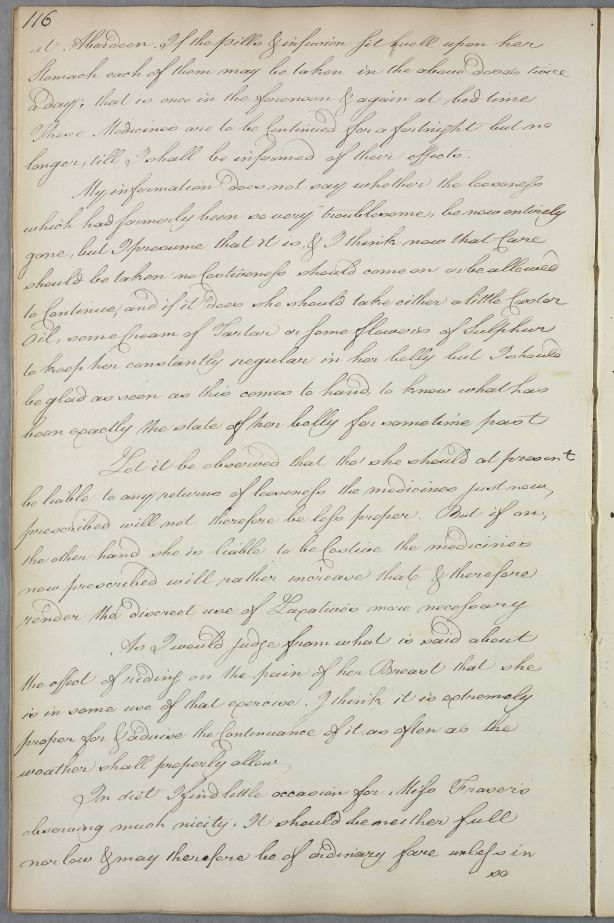 116
at Aberdeen. If the pills & infusion sit well upon her
Stomach each of them may be taken in the above doses twice
a day; that is once in the forenoon & again at bed time
These Medicines are to be Continued for a fortnight but no
longer, till I shall be informed of their effects.
My information does not say whether the looseness
which had formerly been so very troublesome, be now entirely
gone, but I presume that it is, & I think now that Care
should be taken no Costiveness should come on or be allowed
to Continue; and if it does she should take either a little Castor
Oil, some Cream of Tartar or some flowers of Sulphur
to keep her constantly regular in her belly but I should
be glad as soon as this comes to hand, to know what has
been exactly the state of her belly for sometime past
Let it be observed that tho' she should at present
be liable to any returns of looseness the medicines just now,
prescribed will not therefore be less proper. But if on,
the other hand she is liable to be Costive the medicines
now prescribed will rather increase that & therefore
render the discreet use of Laxatives more necessary
As I would judge from what is said about
the effect of riding on the pain of her Breast that she
is in some use of that exercise. I think it is extremely
proper for & advise the Continuance of it as often as the
weather shall properly allow
In diet I find little occasion for Miss Fraser's
observing much nicity. It should be neither full
nor low & may therefore be of ordinary fare unless in
so